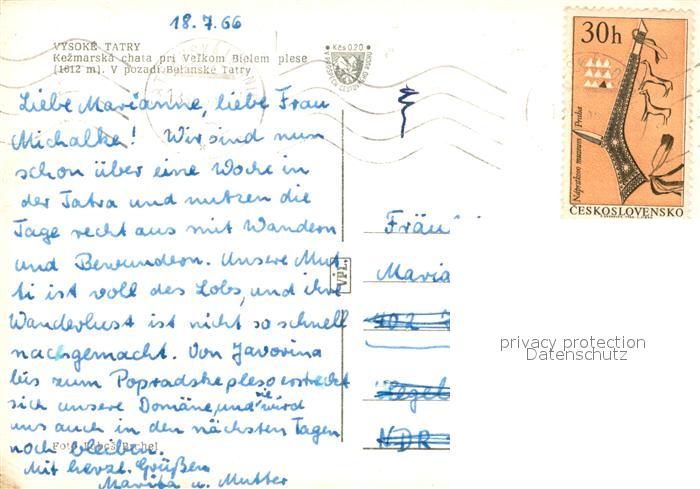 18.7.66
VYSOKÉ TATRY
Kežmarská chata pri Veľkom Bielom plese
(1612 m). V pozadí Belanské Tatry
Liebe Marianne, liebe Frau
Michalke! Wir sind nun
schon über eine Woche in
der Tatra und nutzen die
Tage recht aus mit Wandern
und Bewundern. Unsere Mut-
ti ist voll des Lobs, und ihre
Wanderlust ist nicht so schnell
nachgemacht. Von Javorina
bis zum Popradske pleso erstreckt
sich unsere Domäne, und sie wird
uns auch in den nächsten Tagen
noch bleiben.
Mit herzl. Grüßen
Marita u. Mutter
Kčs 0,20
VPL
30h
Náprstkovo muzeum Praha
ČESKOSLOVENSKO
Fräu
Maria
402
Zegel
NDR
privacy protection
Datenschutz